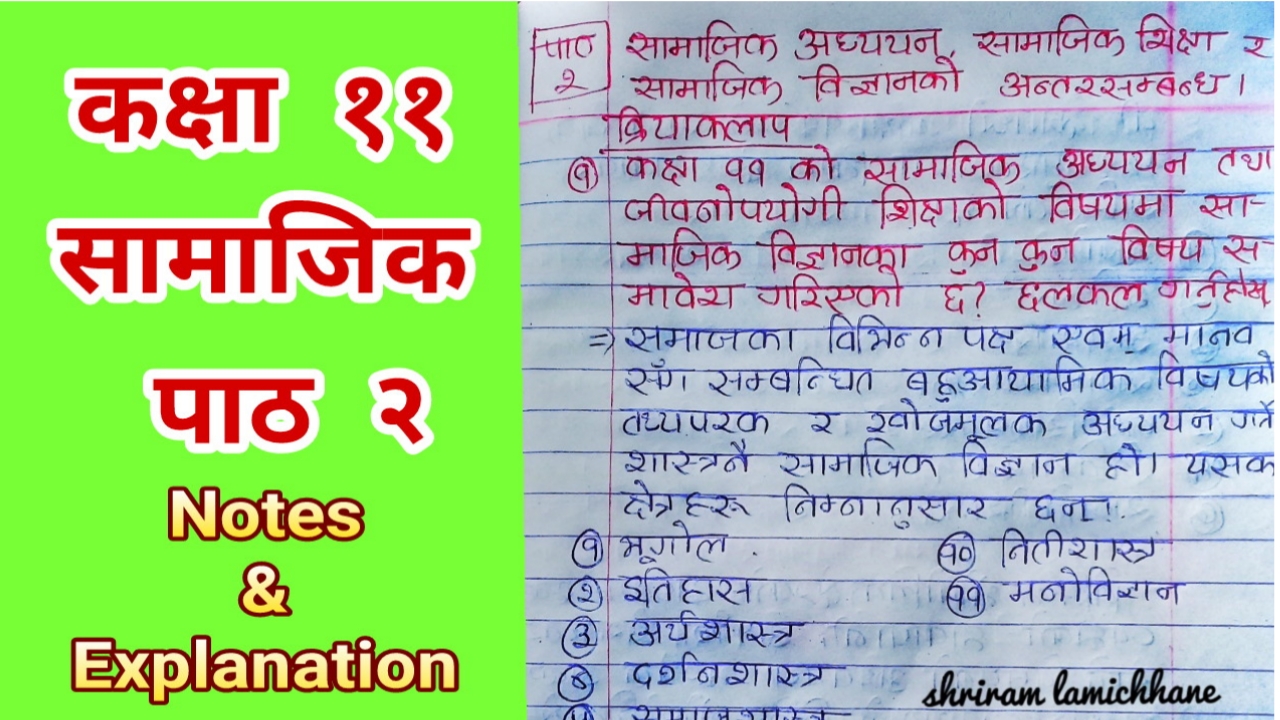 कक्षा ११
सामाजिक
पाठ २
Notes
&
Explanation
पाठ
२
सामाजिक अध्ययन, सामाजिक शिक्षा र
सामाजिक विज्ञानको अन्तरसम्बन्ध।
क्रियाकलाप
१ कक्षा ११ को सामाजिक अध्ययन तथा
जीवनोपयोगी शिक्षाको विषयमा सा-
माजिक विज्ञानका कुन कुन विषय स-
मावेश गरिएको छ? छलफल गर्नुहोस
=> समाजका विभिन्न पक्ष एवम् मानव
सँग सम्बन्धित बहुआयामिक विषयको
तथ्यपरक र खोजमूलक अध्ययन गर्ने
शास्त्रनै सामाजिक विज्ञान हो। यसक
क्षेत्रहरू निम्नानुसार छन्।
१ भूगोल १० नितीशास्त्र
२ इतिहास ११ मनोविज्ञान
३ अर्थशास्त्र
४ दर्शनशास्त्र
५ समाजशास्त्र
shriram lamichhane